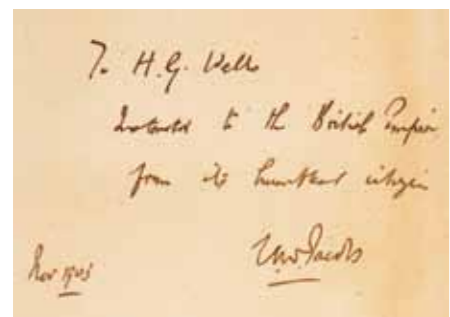 To H.G. Wells
Instructor to the British Empire
from its humblest citizen
W.W. Jacobs
Nov 1905